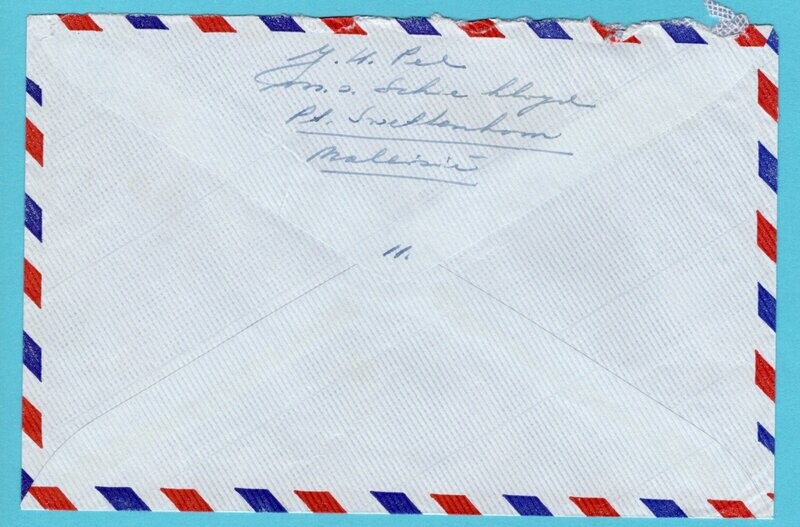 J. H. Pel
m.s. Schie Lloyd
Pt. Swettenham
Maleisië
11.